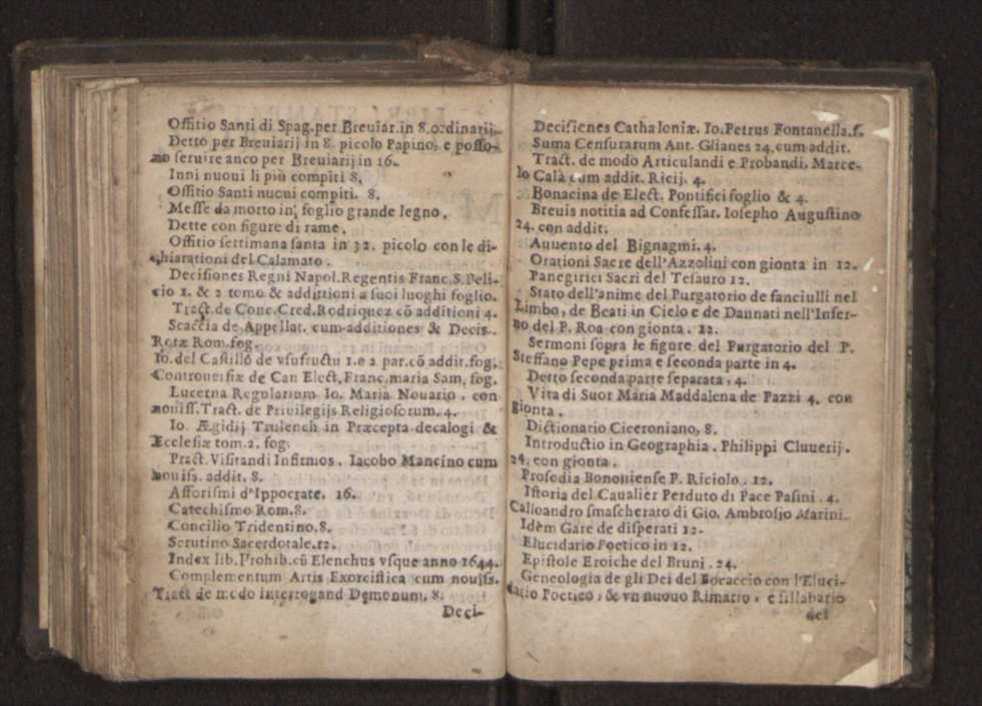 Offitio Santi di Spag.per Breuiar.in 8.ordinarij.
Detto per Breuiarij in 8. picolo Papino, e posso-
no seruire anco per Breuiarij in 16.
Inni nuoui li più compiti 8.
Offitio Santi nuoui compiti. 8.
Messe da morto in foglio grande legno.
Dette con figure di rame.
Offitio settimana santa in 32. picolo con le di-
chiarationi del Calamato.
Decisiones Regni Napol.Regentis Franc.S.Peli-
cio 1. & 2 tomo & additioni a suoi luoghi foglio.
Tract.de Conc.Cred.Rodriquez cõ additioni 4.
Scaccia de Appellat. cum additiones & Decis.
Rotæ Rom.fog.
Io.del Castillo de vsofructu 1.e 2 par.cõ addit.fog.
Controuersiæ de Can Elect.Franc.maria Sam. fog.
Lucerna Regularium Io. Maria Nouario. con
nouiss.Tract. de Priuilegijs Religiosorum. 4.
Io. Ægidij Trulench in Præcepta decalogi &
Ecclesiæ tom.2. fog.
Pract.Visitandi Infirmos. Iacobo Mancino cum
nouiss. addit. 8.
Afforismi d'Ippocrate. 16.
Catechismo Rom.8.
Concilio Tridentino.8.
Scrutino Sacerdotale.12.
Index lib.Prohib.cũ Elenchus vsque anno 1644.
Complementum Artis Exorcistica cum nouiss.
Tract de modo interrogand Demonum. 8.
Deci-
Decisiones Cathaloniæ. Io.Petrus Fontanella.f.
Suma Censurarum Ant. Glianes 24.cum addit.
Tract. de modo Articulandi e Probandi. Marce-
lo Calà cum addit. Ricij. 4.
Bonacina de Elect. Pontifici foglio & 4.
Breuis notitia ad Confessar. Iosepho Augustino
24. con addit.
Auuento del Bignagmi. 4.
Orationi Sacre dell'Azzolini con gionta in 12.
Panegirici Sacri del Tesauro 12.
Stato dell'anime del Purgatorio de fanciulli nel
Limbo, de Beati in Cielo e de Dannati nell'Infer-
no del P. Roa con gionta. 12.
Sermoni sopra le figure del Purgatorio del P.
Steffano Pepe prima e seconda parte in 4.
Detto seconda parte separata. 4.
Vita di Suor Maria Maddalena de Pazzi 4. con
gionta.
Dictionario Ciceroniano, 8.
Introductio in Geographia. Philippi Cluuerij.
24. con gionta.
Prosodia Bononiense P. Riciolo. 12.
Istoria del Caualier Perduto di Pace Pasini. 4.
Calloandro smascherato di Gio. Ambrosio Marini.
Idem Gare de disperati 12.
Elucidario Poetico in 12.
Epistole Eroiche del Bruni. 24.
Geneologia de gli Dei del Boraccio con l'Eluci-
dario Poetico, & vn nuouo Rimario, e sillabario
del